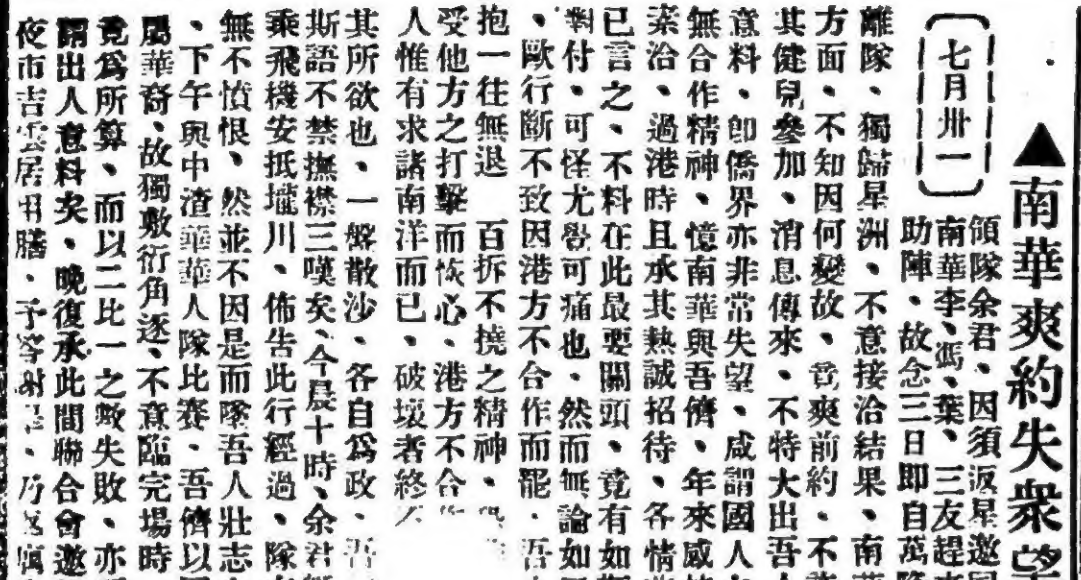 ▲南華爽約失衆望
七月卅一
領隊余君、因須返星邀
南華李、馮、葉、三友趕
助陣、故念三日即自萬隆
離隊、獨歸星洲、不意接洽結果、南華
方面、不知因何變故、竟爽前約、不
其健兒參加、消息傳來、不特大出吾人
意料、即僑界亦非常失望、咸謂國人
無合作精神、憶南華與吾儕、年來感情
素洽、過港時且承其熱誠招待、各情
已言之、不料在此最要關頭、竟有如
對付、可怪尤覺可痛也、然而無論如
、歐行斷不致因港方不合作而罷、吾
抱一往無退 百拆不撓之精神、
受他方之打擊而恢心、港方不合
人惟有求諸南洋而已、破壞者終
其所欲也、一盤散沙、各自爲政、吾
斯語不禁撫襟三嘆矣、今晨十時、余君
乘飛機安抵壠川、佈告此行經過、隊
無不憤恨、然並不因是而墜吾人壯志
、下午與中渣華華人隊比賽、吾儕以
屬華裔、故獨敷衍角逐、不意臨完場時
竟爲所算、而以二比一之數失敗、亦
謂出人意料矣、晚復承此間聯合會邀
夜市吉雲居用膳、予